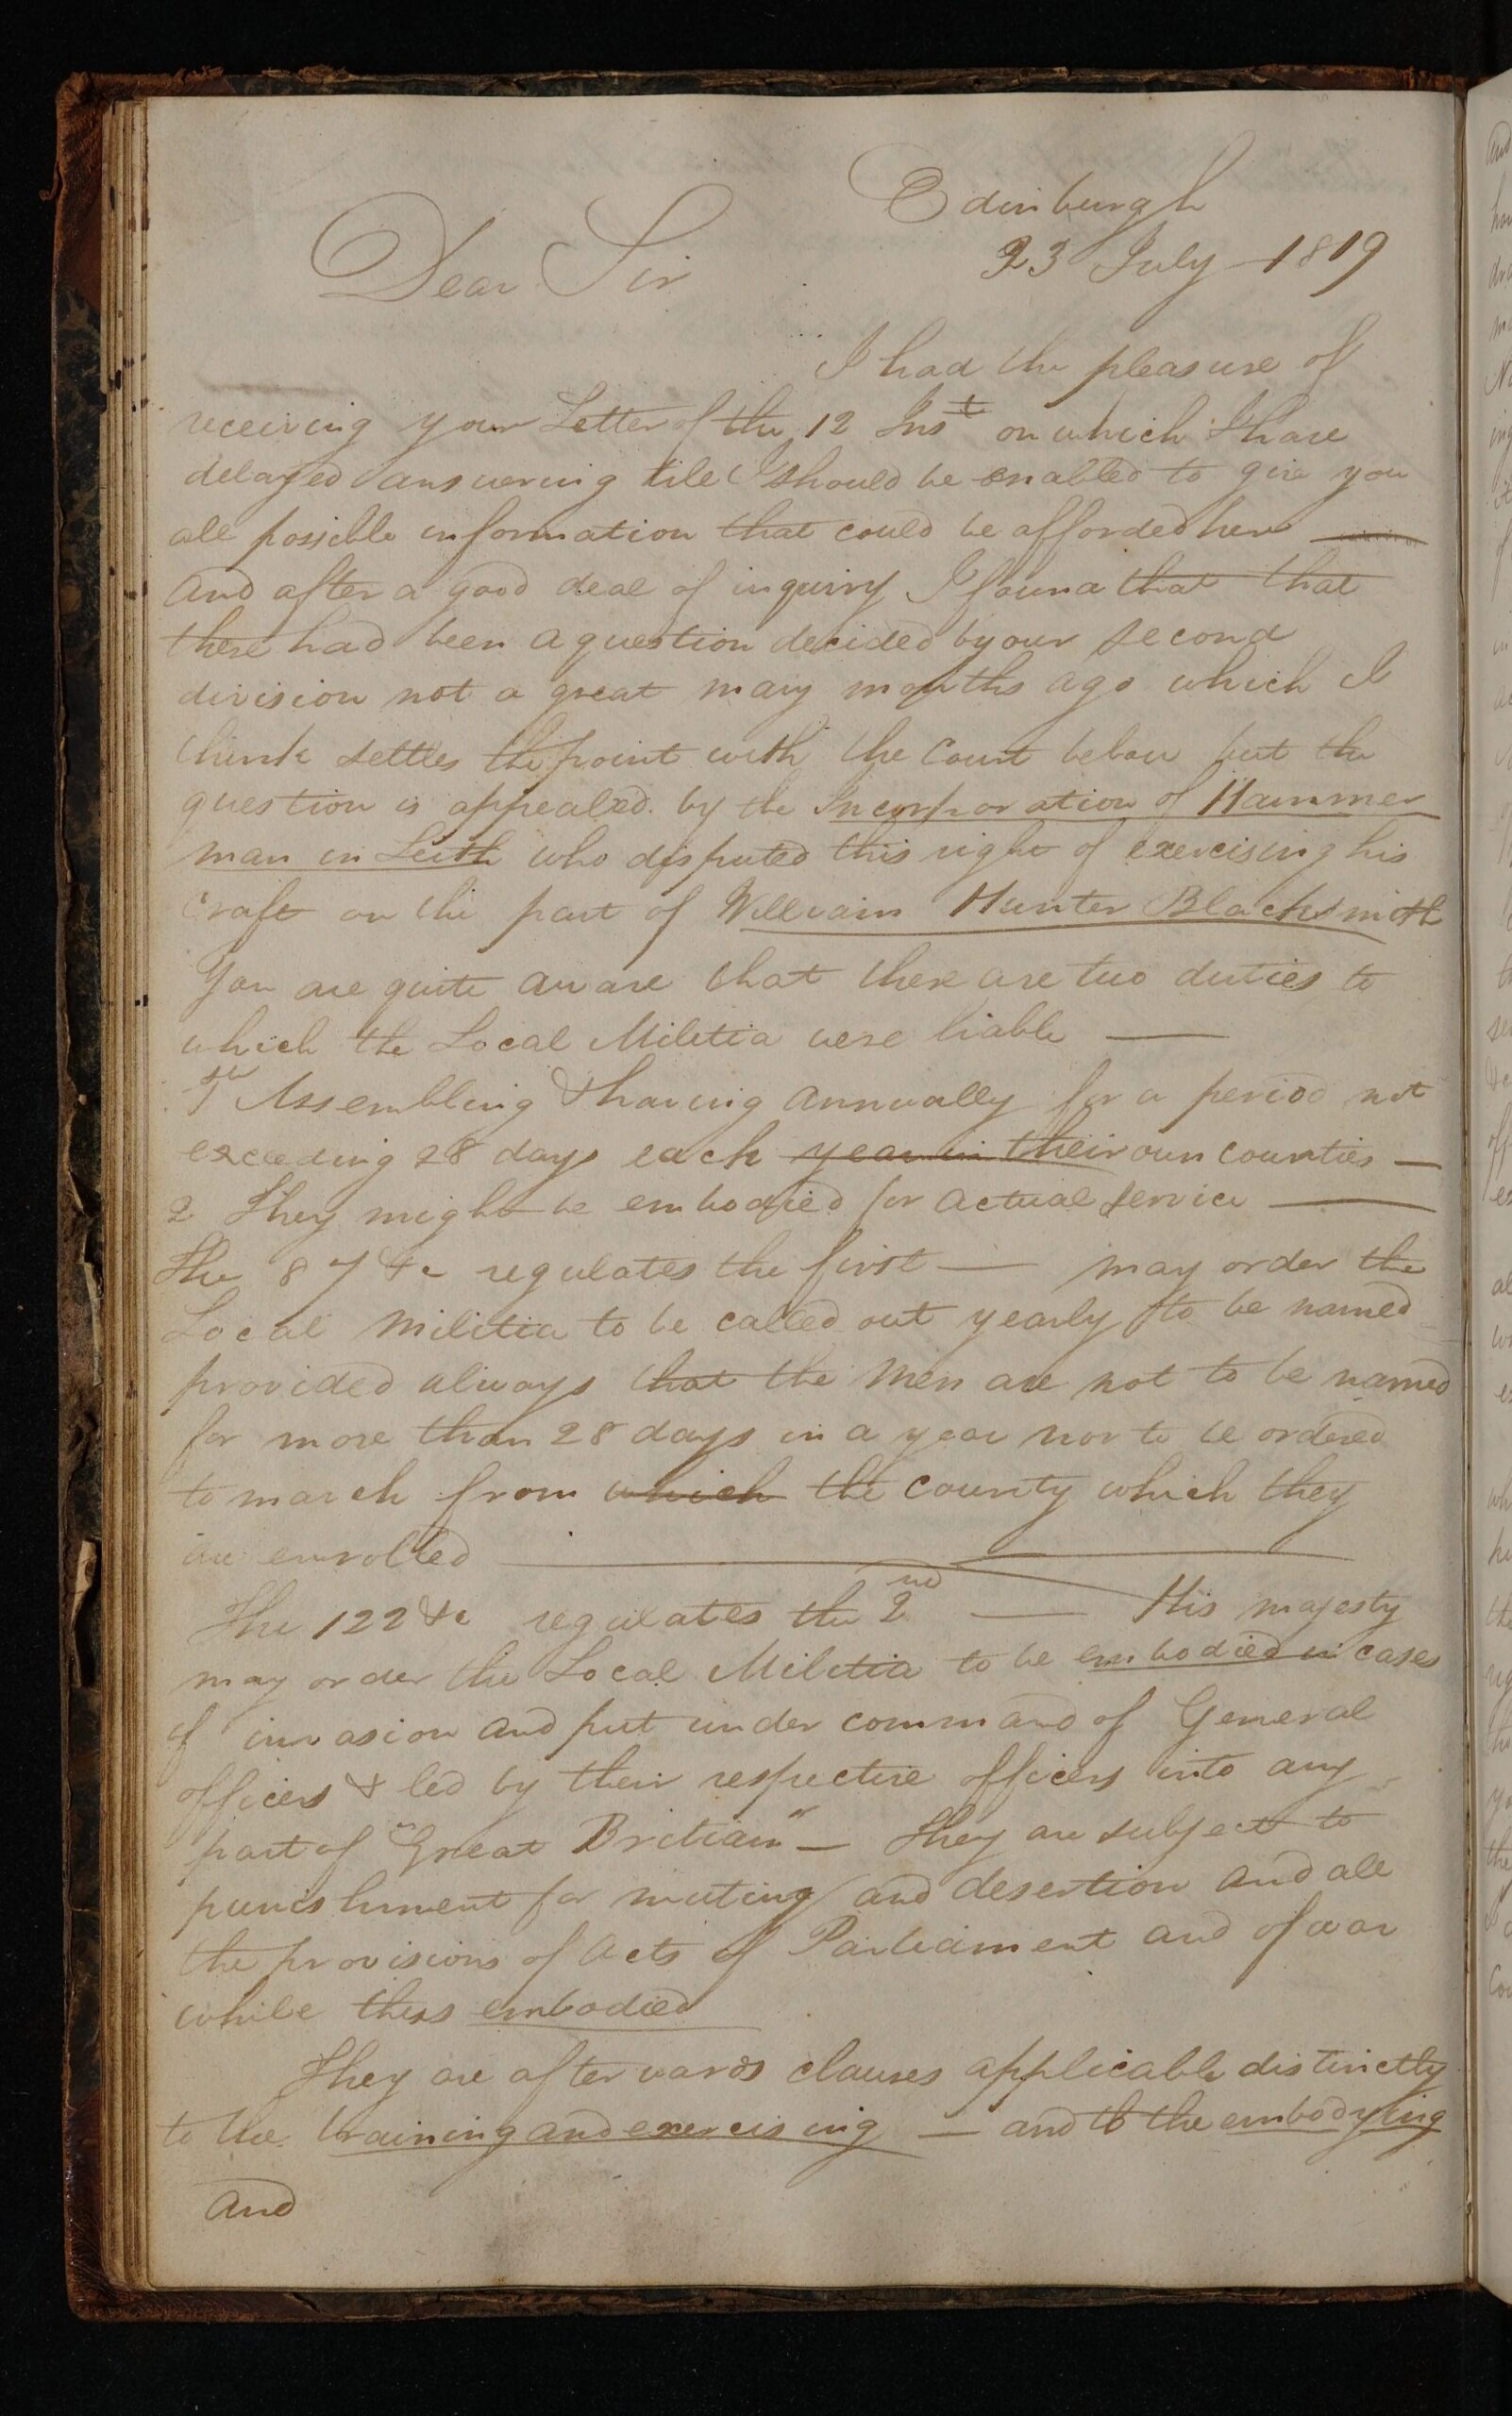 Edinburgh
Dear Sir 23 July 1819
I had the pleasure of
receiving your Letter of the 12 Inst on which I have
delayed answering till I should be enabled to give you
all possible information that could be afforded here
and after a good deal of inquiry I found that that
there had been a question decided by our second
division not a great many months ago which I
think settles the point with the Court below but the
question is appealed by the Incorporation of Hammer
man in Leith who disputed this right of exercising his
craft on the part of William Hunter Blacksmith
You are quite aware that there are two duties to
which the Local Militia were liable —
Assembling & having annually for a period not
exceeding 28 days each year in their own counties —
2 They might be embodied for actual service —
The 87 &c regulates the first — may order the
Local Militia to be called out yearly to be named
provided always that the men are not to be named
for more than 28 days in a year nor to be ordered
to march from which the county which they
are enrolled —
The 122 &c regulates the 2nd — His majesty
may order the Local Militia to be embodied in cases
of invasion and put under command of General
officers & led by their respective officers into any
part of "Great Britian" — They are subject to
punishment for mutiny and desertion and all
the provisions of Acts of Parliament and of war
while thus embodied
They are afterwards clauses applicable distinctly
to the training and exercising — and to the embodying
and